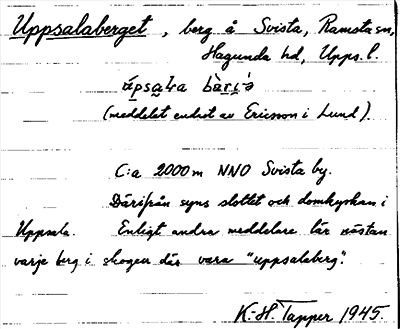 Uppsalaberget, berg å Svista, Ramsta sn,
Hagunda hd, Upps. l.
(meddelat endast av Ericsson i Lund).
C:a 2000 m NNO Svista by.
Därifrån syns slottet och domkyrkan i
Uppsala. Enligt andra meddelare lär nästan
varje berg i skogen där vara "uppsalaberg".
K.-H. Tapper 1945.